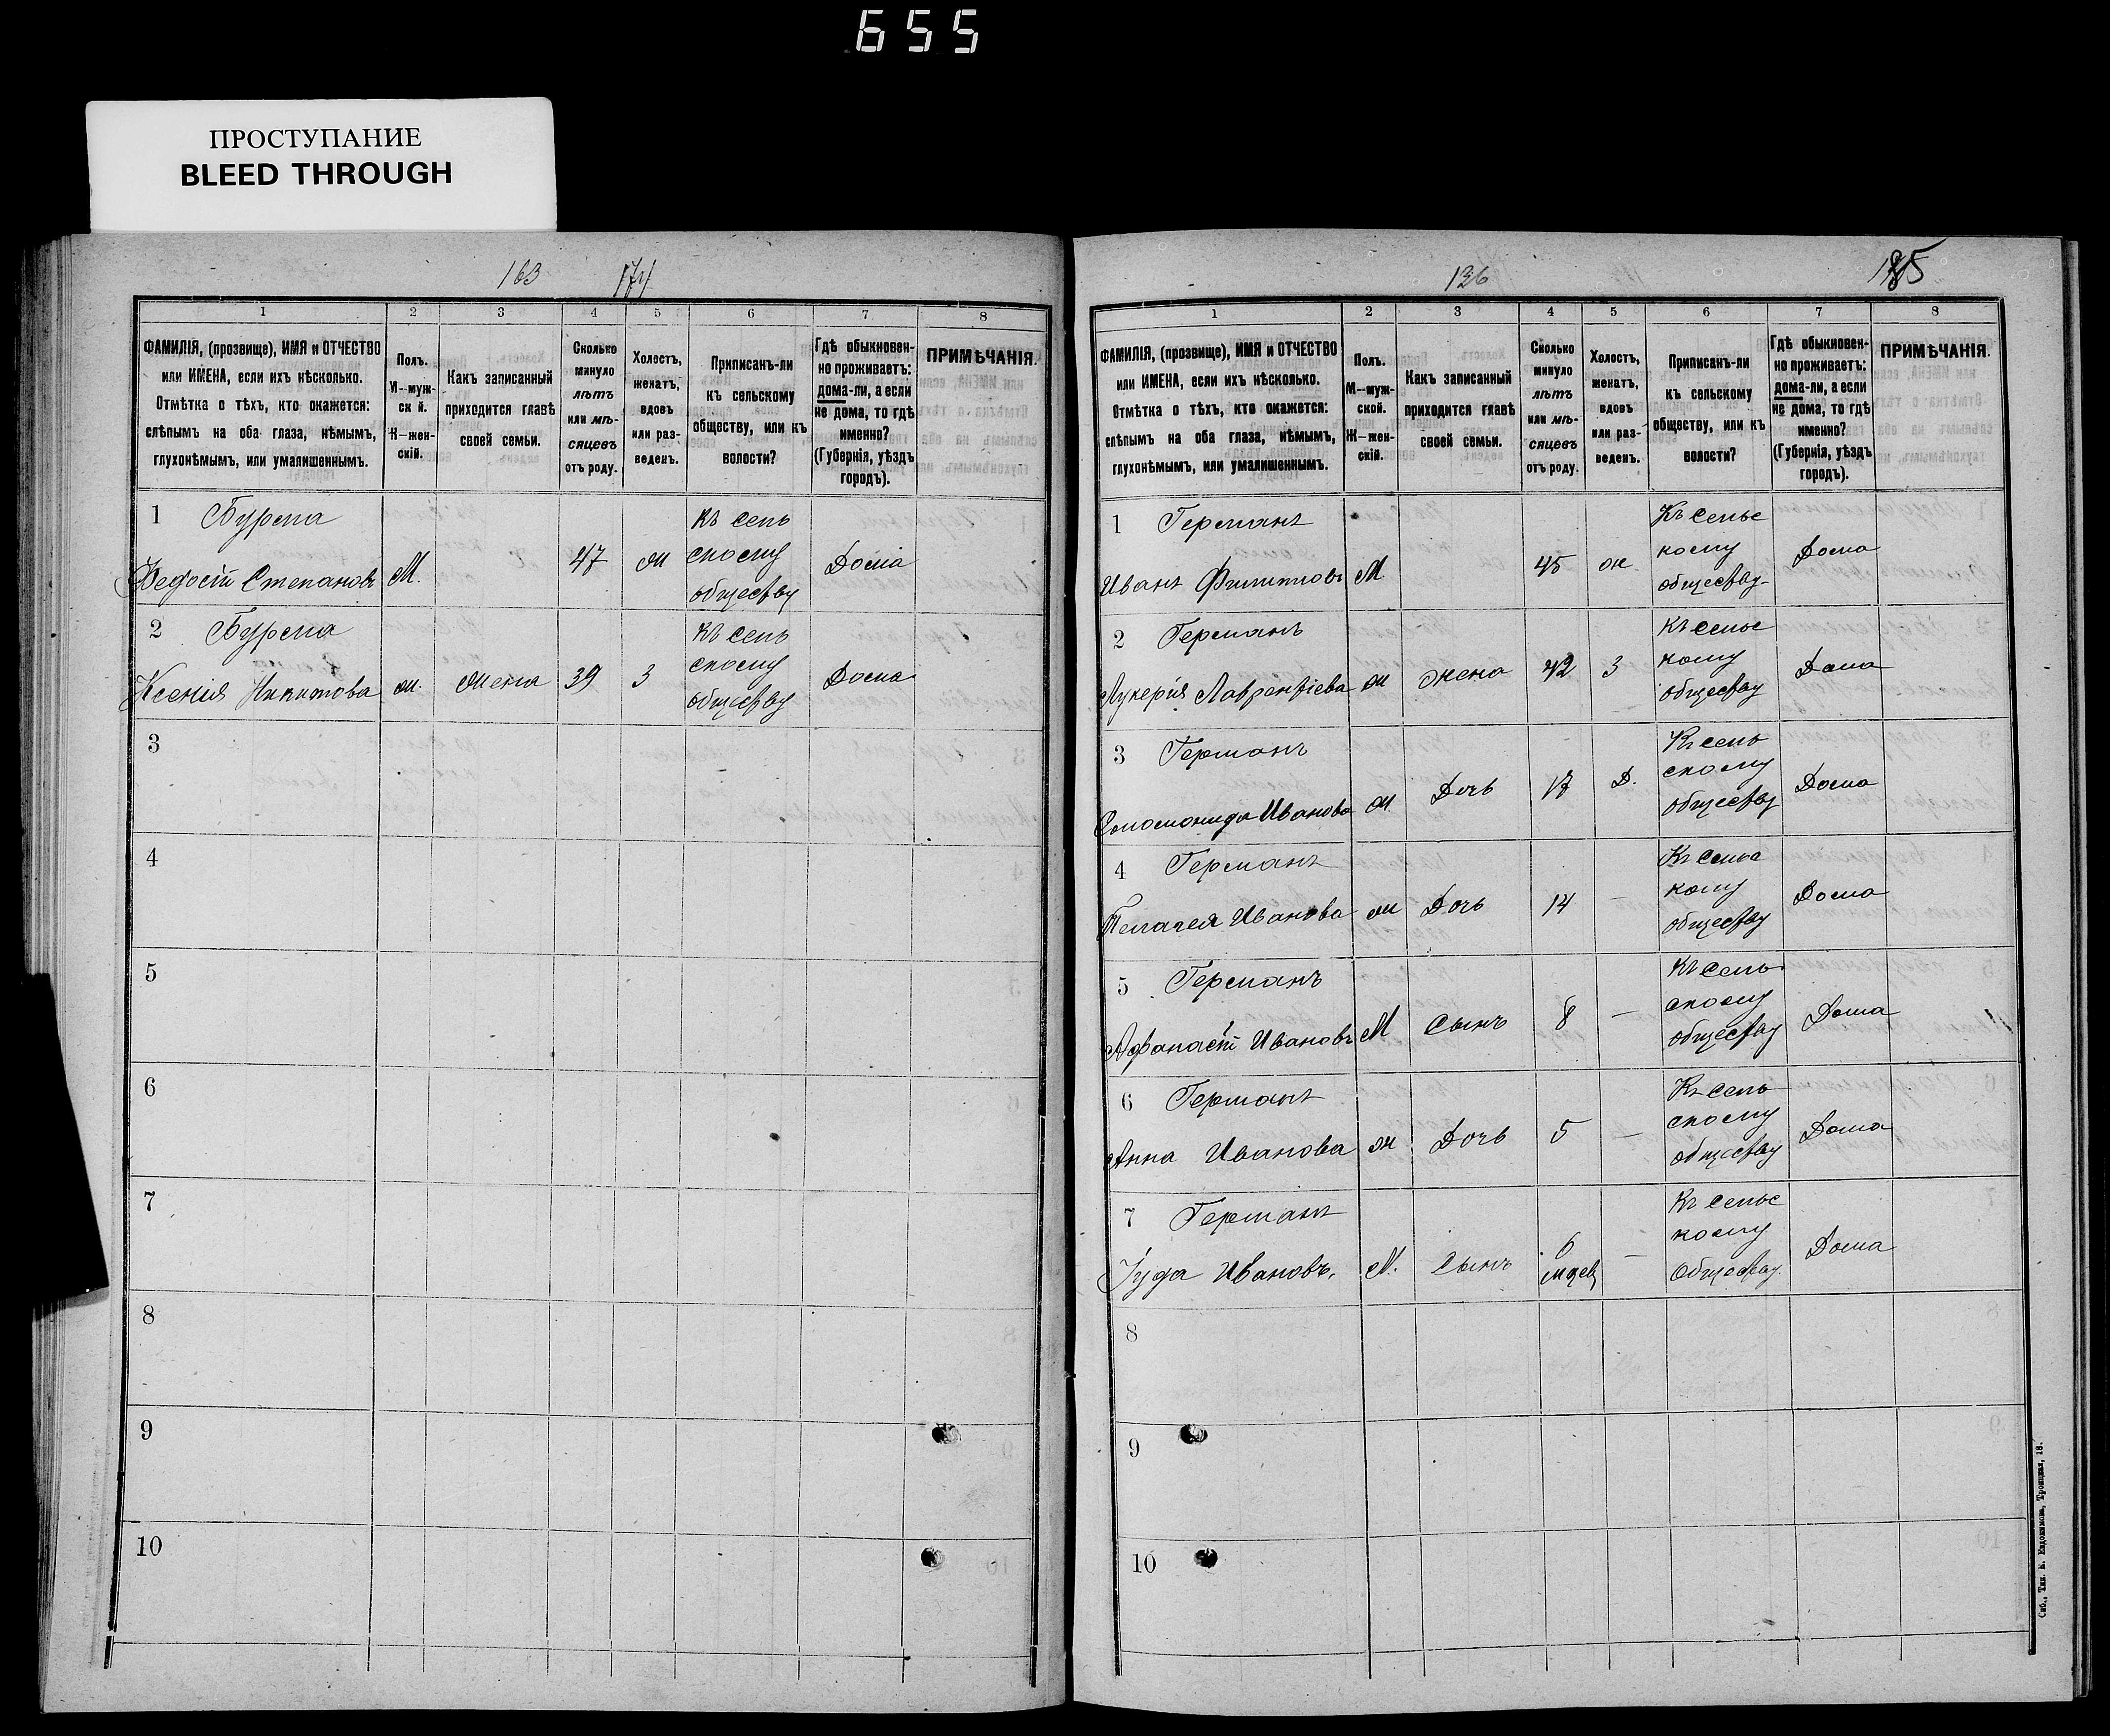 655
ПРОСТУПАНИЕ
BLEED THROUGH
163 174
1 2 3 4 5 6 7 8
ФАМИЛІЯ, (прозвище), ИМЯ и ОТЧЕСТВО или ИМЕНА, если ихъ нѣсколько. Отмѣтка о тѣхъ, кто окажется: слѣпымъ на оба глаза, нѣмымъ, глухонѣмымъ, или умалишеннымъ.
Полъ. М—мужской. Ж—женскій.
Какъ записанный приходится главѣ своей семьи.
Сколько минуло лѣтъ или мѣсяцевъ отъ роду.
Холостъ, женатъ, вдовъ или разведенъ.
Приписанъ-ли къ сельскому обществу, или къ волости?
Гдѣ обыкновенно проживаетъ: дома-ли, а если не дома, то гдѣ именно? (Губернія, уѣздъ городъ).
ПРИМѢЧАНІЯ.
1 Бурма
Федосій Степановъ М. 47 ж Къ сельскому обществу Дома
2 Бурма
Ксенія Никитова ж. жена 39 З Къ сельскому обществу Дома
3
4
5
6
7
8
9
10
136 185
1 2 3 4 5 6 7 8
ФАМИЛІЯ, (прозвище), ИМЯ и ОТЧЕСТВО или ИМЕНА, если ихъ нѣсколько. Отмѣтка о тѣхъ, кто окажется: слѣпымъ на оба глаза, нѣмымъ, глухонѣмымъ, или умалишеннымъ.
Полъ. М—мужской. Ж—женскій.
Какъ записанный приходится главѣ своей семьи.
Сколько минуло лѣтъ или мѣсяцевъ отъ роду.
Холостъ, женатъ, вдовъ или разведенъ.
Приписанъ-ли къ сельскому обществу, или къ волости?
Гдѣ обыкновенно проживаетъ: дома-ли, а если не дома, то гдѣ именно? (Губернія, уѣздъ городъ).
ПРИМѢЧАНІЯ.
1 Германъ
Иванъ Филиповъ М 45 ж Къ сельскому обществу Дома
2 Германъ
Лукерія Лаврентіева ж жена 42 З Къ сельскому обществу Дома
3 Германъ
Соломонида Иванова ж. Дочь 17 Д. Къ сельскому обществу Дома
4 Германъ
Пелагея Иванова ж Дочь 14 — Къ сельскому обществу Дома
5 Германъ
Афанасій Ивановъ М Сынъ 8 — Къ сельскому обществу Дома
6 Германъ
Анна Иванова ж Дочь 5 — Къ сельскому обществу Дома
7 Германъ
Іуда Ивановъ. М. Сынъ 6 мцев — Къ сельскому Обществу Дома
8
9
10
Спб., Тип. К. Евдокимова, Троицкая, 18.